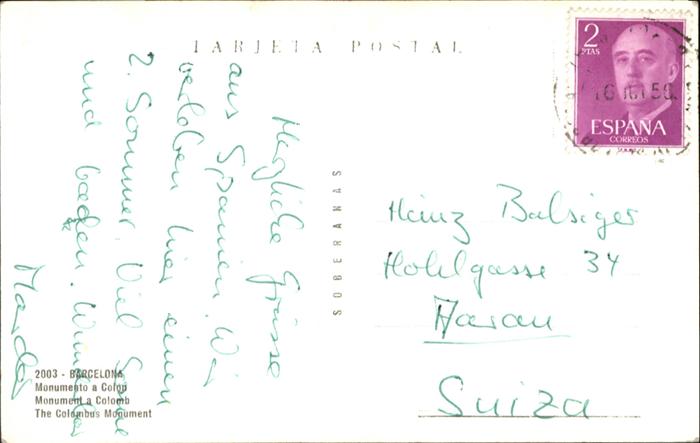 TARJETA POSTAL
2
PTAS
ESPAÑA
CORREOS
Herzliche Grüsse
aus Spanien. Wir
verleben hier einen
2. Sommer. Viel Sonne
und baden.
SOBERANAS
Heinz Balsiger
Hohlgasse 34
Aarau
Suiza
2003 - BARCELONA
Monumento a Colón
Monument a Colomb
The Colombus Monument